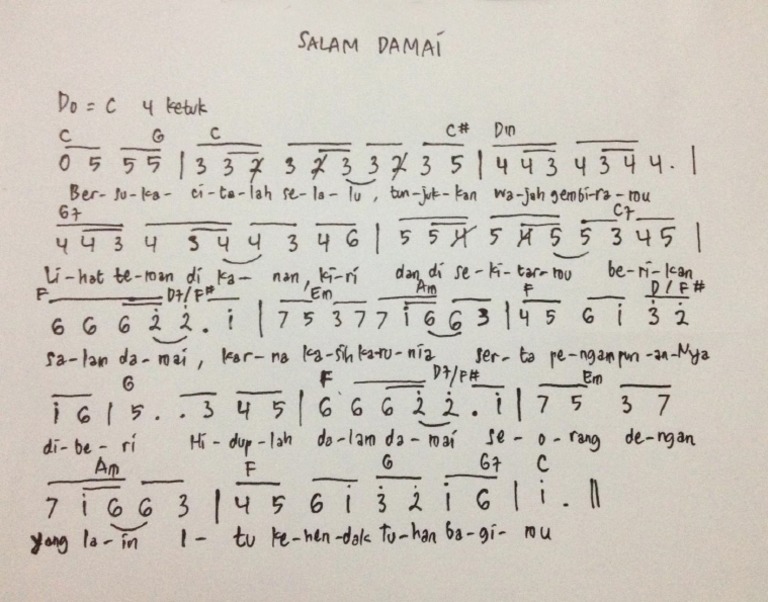 SALAM DAMAI
Do = C 4 ketuk
C G C C# Dm
0 5 5 5 | 3 3 2̸ 3 2̸ 3 3 2̸ 3 5 | 4 4 3 4 3 4 4 . |
Ber- su- ka- ci- ta- lah se- la- lu , tun- juk- kan wa- jah gembi- ra- mu
G7 C7
4 4 3 4 3 4 4 3 4 6 | 5 5 4̸ 5 4̸ 5 5 3 4 5 |
Li- hat te- man di ka- nan, ki- ri dan di se- ki- tar- mu be- ri- kan
F D7/F# Em Am F D/F#
6 6 6 2̇ 2̇ . i̇ | 7 5 3 7 7 i̇ 6 6 3 | 4 5 6 i̇ 3̇ 2̇
sa- lam da- mai , kar- na ka- sih karu- nia ser- ta pe- ngampun -an- Nya
G F D7/F# Em
i̇ 6 | 5 . . 3 4 5 | 6 6 6 2̇ 2̇ . i̇ | 7 5 3 7
di- be- ri Hi- dup- lah da- lam da- mai se- o- rang de- ngan
Am F G G7 C
7 i̇ 6 6 3 | 4 5 6 i̇ 3̇ 2̇ i̇ 6 | i̇ . ||
yang la- in I- tu ke- hen- dak Tu- han ba- gi- mu